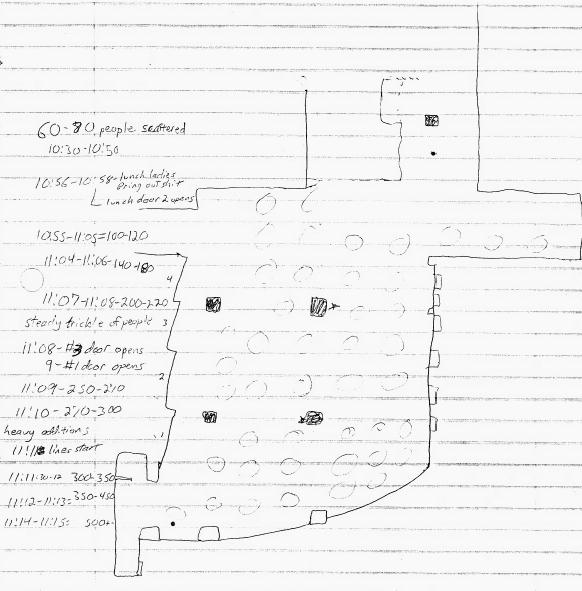 60-80 people scattered
10:30-10:50
10:56-10:58-lunch ladies
bring out shit
lunch door 2 opens
10:55-11:05=100-120
11:04-11:06-140-180
4
11:07-11:08-200-220
steady trickle of people 3
11:08-#3 door opens
9-#1 door opens
2
11:09-250-270
11:10-270-300
heavy additions
1
lines start
11:11:30-12 300-350
11:12-11:13=350-450
11:14-11:15= 500+